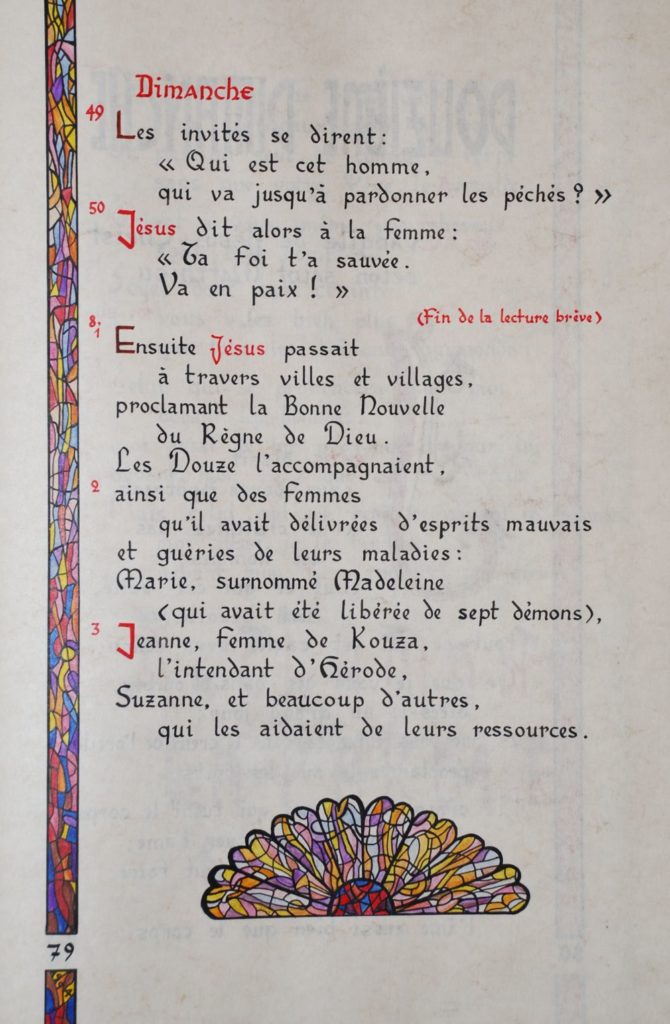 Dimanche
49 Les invités se dirent :
« Qui est cet homme,
qui va jusqu'à pardonner les péchés ? »
50 Jésus dit alors à la femme :
« Ta foi t'a sauvée.
Va en paix ! »
(Fin de la lecture brève)
8,1 Ensuite Jésus passait
à travers villes et villages,
proclamant la Bonne Nouvelle
du Règne de Dieu.
Les Douze l'accompagnaient,
2 ainsi que des femmes
qu'il avait délivrées d'esprits mauvais
et guéries de leurs maladies :
Marie, surnommé Madeleine
(qui avait été libérée de sept démons),
3 Jeanne, femme de Kouza,
l'intendant d'Hérode,
Suzanne, et beaucoup d'autres,
qui les aidaient de leurs ressources.
79